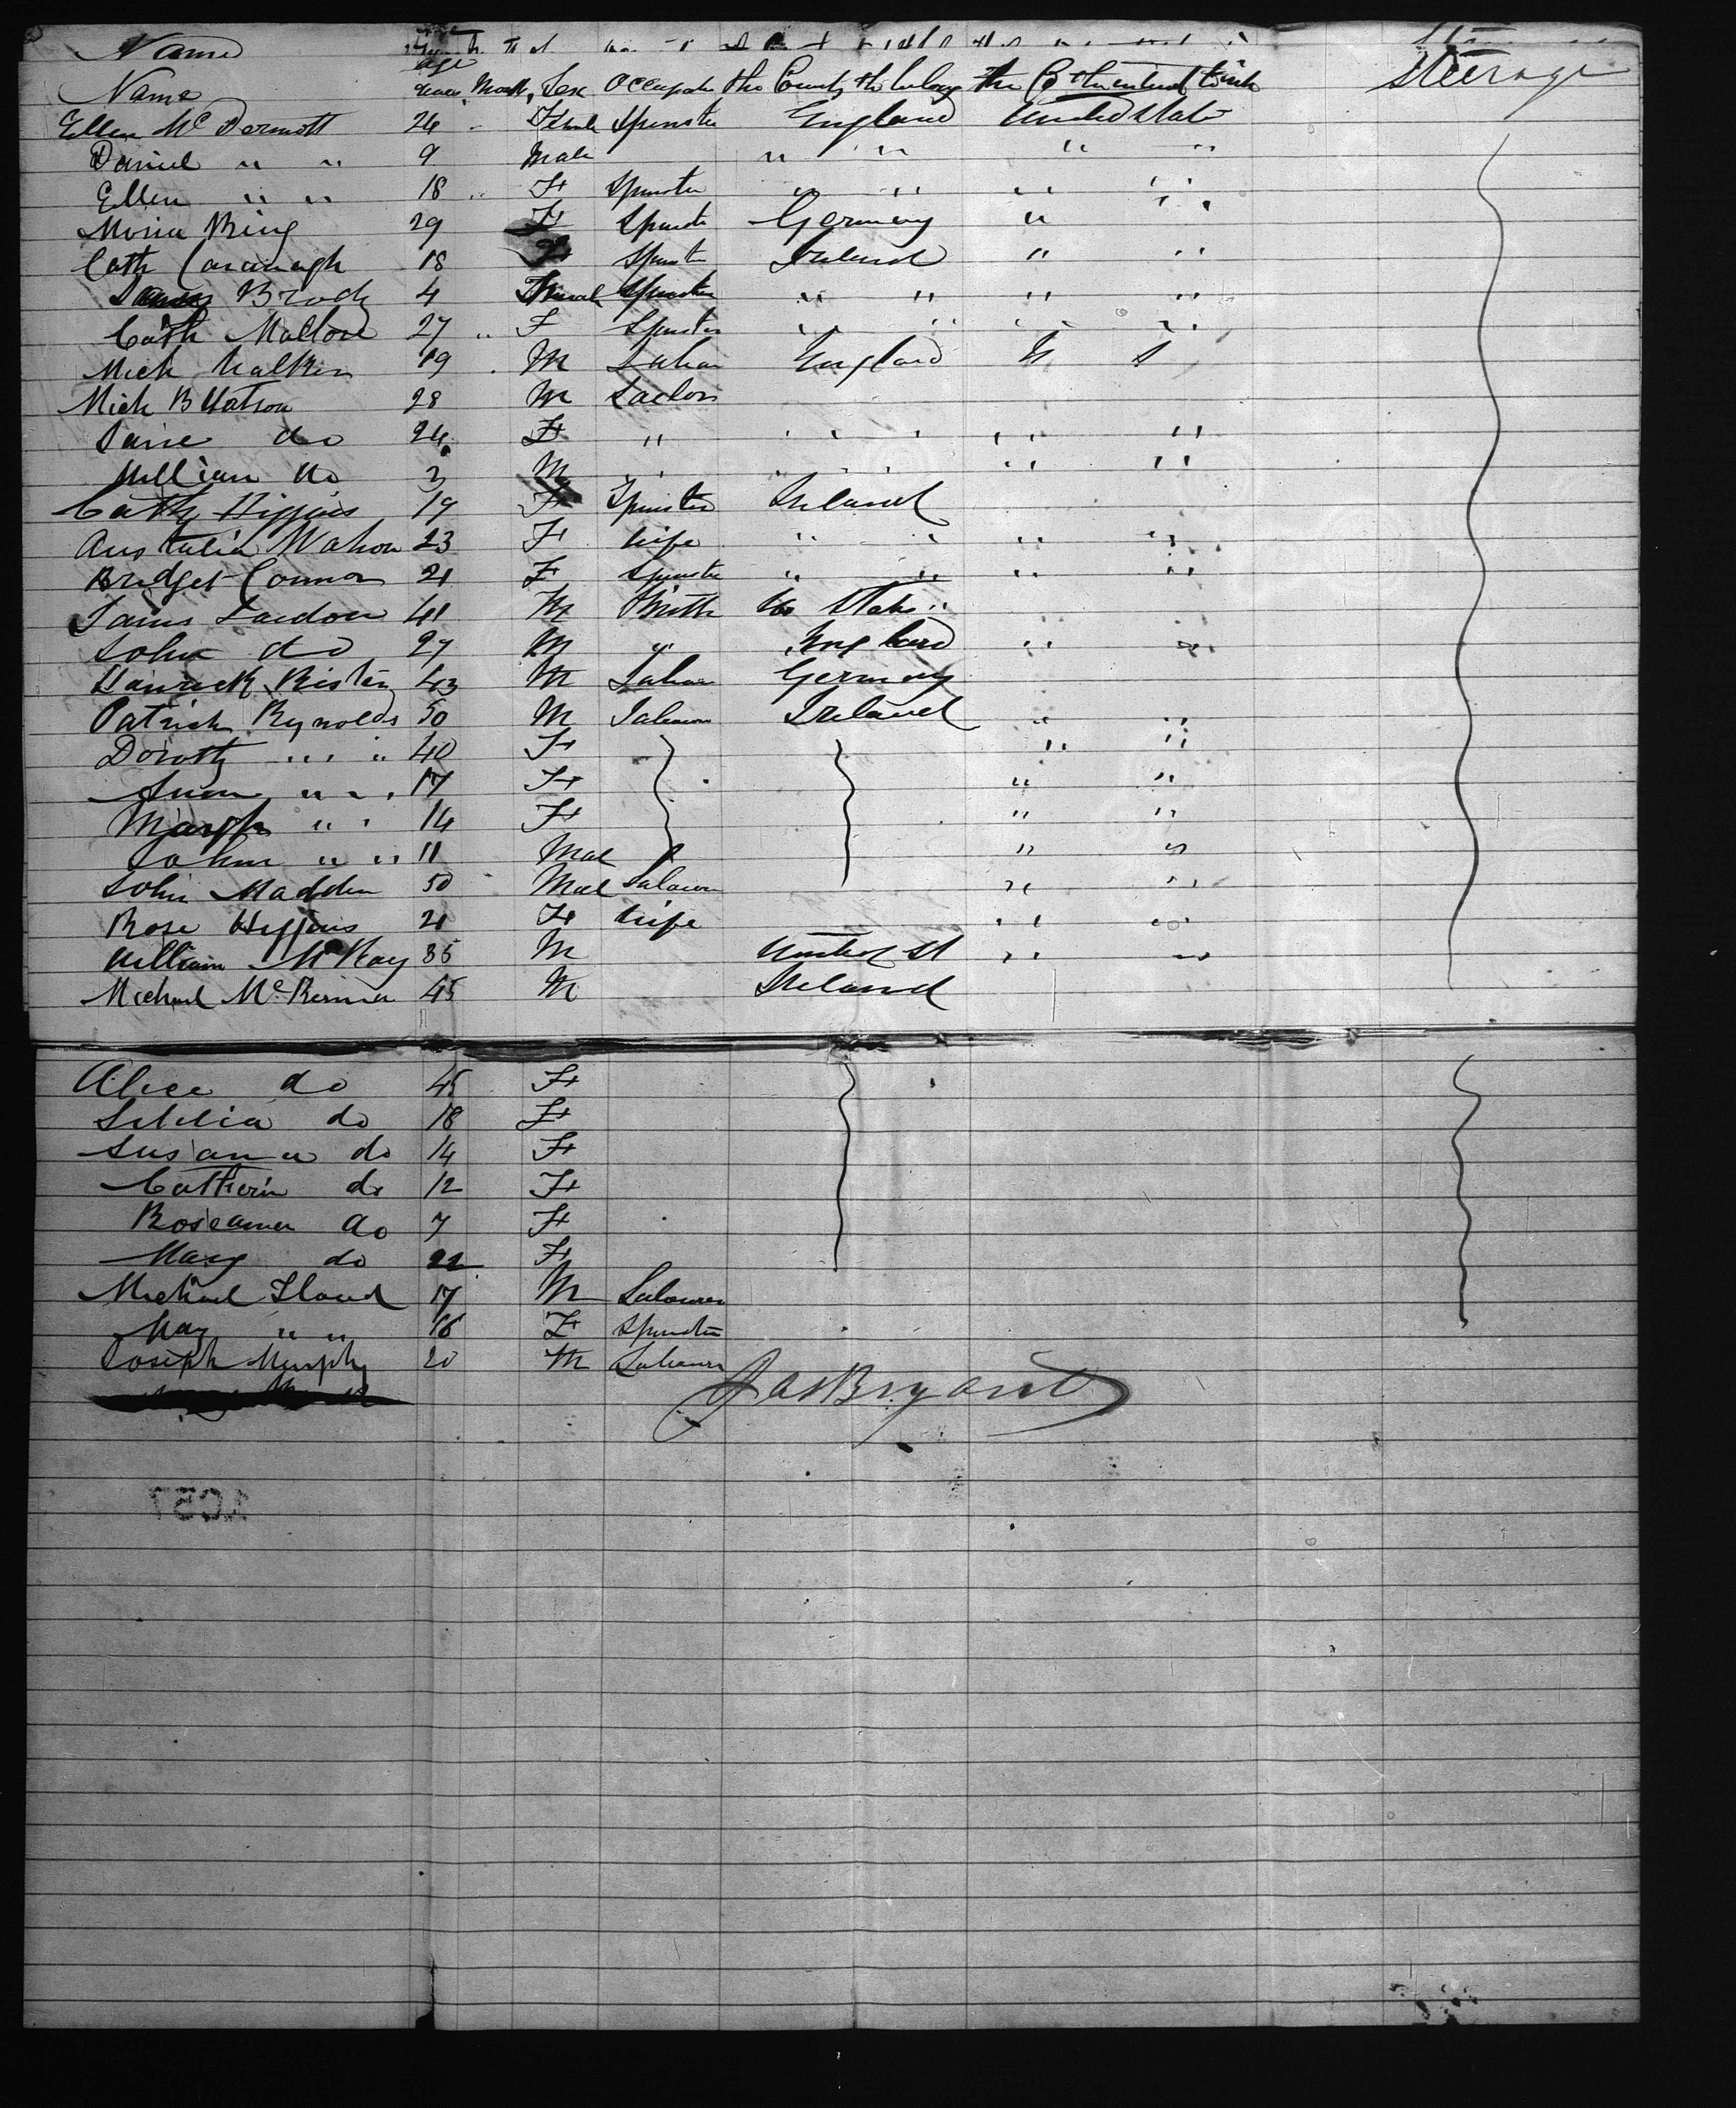 Name
Name age years Month Sex Occupate the County the belong the Co the intend to inh Steerage
Ellen Mc Dermott 24 Female Spinster England United State
Daniel " " 9 Male " " " "
Ellen " " 18 " F Spinster " " " "
Maria King 29 F Spinster Germany " "
Cath Cavanagh 18 F Spinster Ireland " "
James Brody 4 Female Spinster " " " "
Cath Mallone 27 " F Spinster " " " "
Mich Walken 19 M Labour England U S
Mich B Watson 28 M Sailor
Jane do 24 F " " " " "
William do 3 M " " " " "
Cathy Higgins 19 F Spinster Ireland
Australia Mahon 23 F Wife " " " "
Bridget Connor 21 F Spinster " " " "
James Laedon 41 M Smith U States "
John do 27 M " England " "
Hanrick Risten 43 M Labour Germany
Patrick Rynolds 50 M Labour Ireland " "
Doroth " " 40 F " "
Ann " " 17 F " "
Margh " " 14 F " "
John " " 11 Mal " "
John Madden 50 Mal Labour " "
Rose Higgins 21 F Wife " "
William McKay 35 M United St " "
Michael Mc Kerina 45 M Ireland
Alice do 45 F
Letitia do 18 F
Susanna do 14 F
Catherin do 12 F
Roseanna do 7 F
Mary do 22 F
Michael Floud 17 M Labourer
May " " 16 F Spinster
Joseph Murphy 20 M Labourer
Jas Bryant
1057